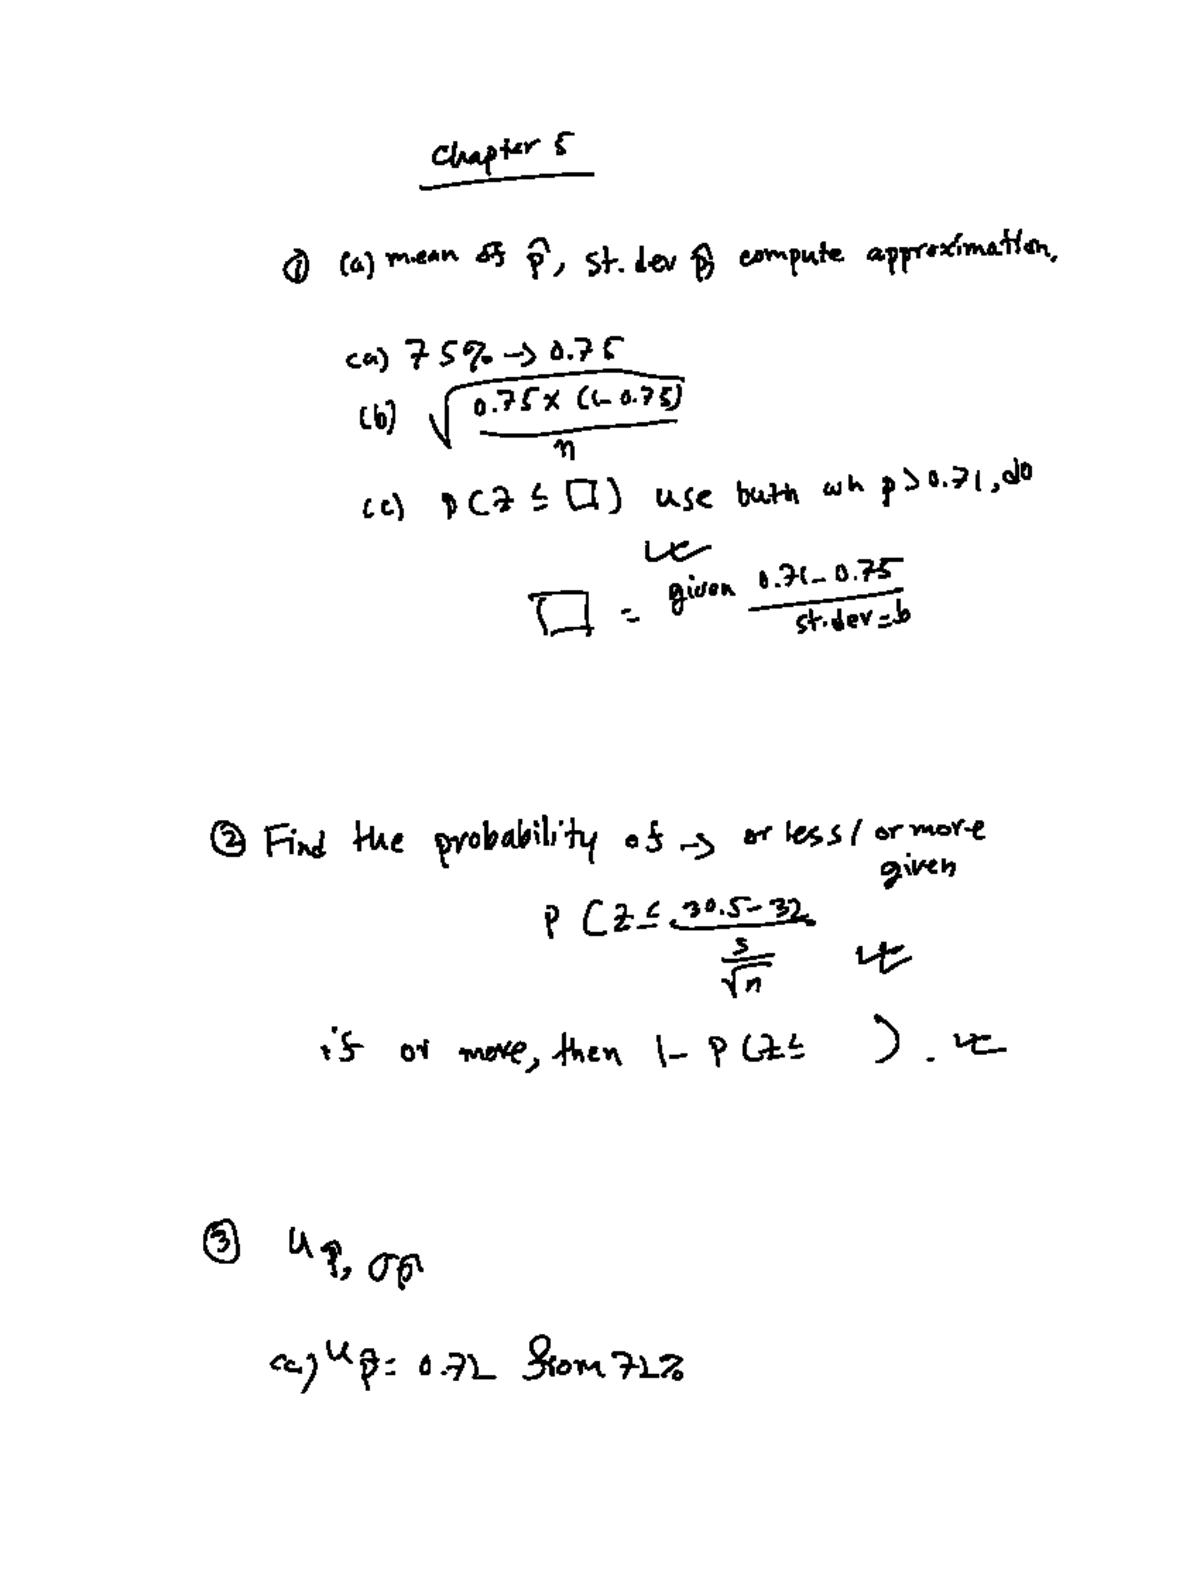 Chapter 5
① (a) mean of p̂, st. dev p̂ compute approximation,
(a) 75% → 0.75
(b) √(0.75 × (1-0.75) / n)
(c) P(Z ≤ □) use both wh p > 0.71, do
□ = given (0.71 - 0.75) / (st.dev = b)
② Find the probability of → or less / or more
given
P (Z ≤ (30.5 - 32) / (s / √n)
if or more, then 1 - P (Z ≤ ).
③ u p̂, σ p̂
(a) u p̂ = 0.72 from 72%